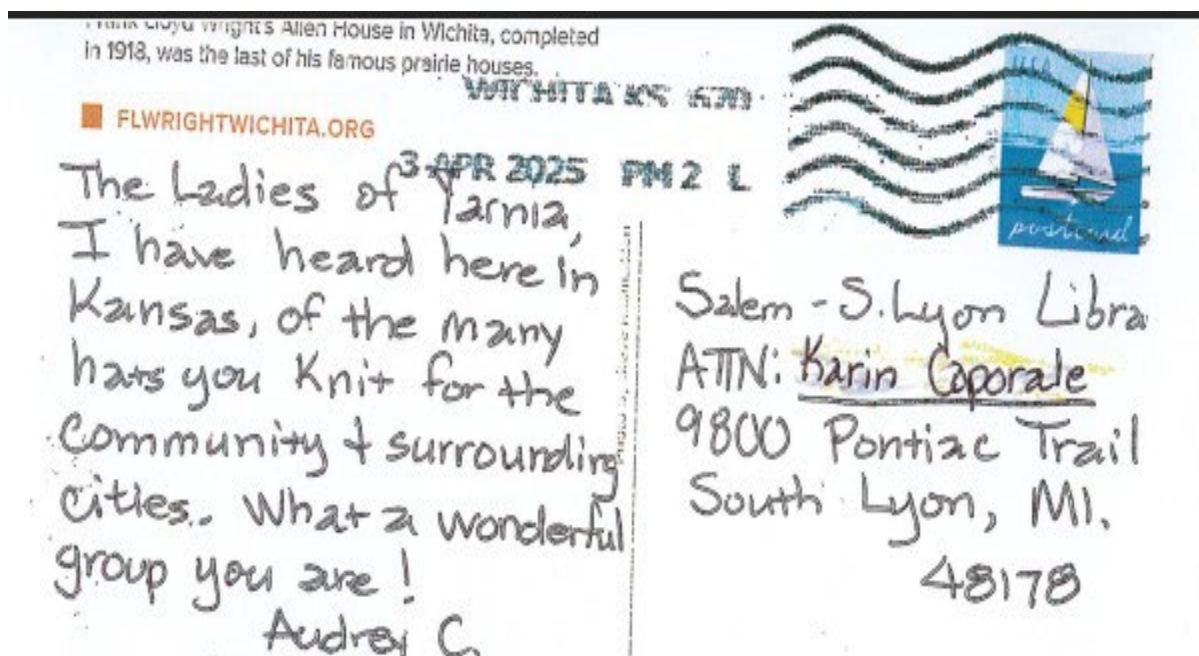 Frank Lloyd Wright's Allen House in Wichita, completed
in 1918, was the last of his famous prairie houses.
FLWRIGHTWICHITA.ORG
WICHITA KS 670
3 APR 2025 PM 2 L
USA
postcard
The Ladies of Yarnia,
I have heard here in
Kansas, of the many
hats you Knit for the
Community + surrounding
cities.. What a wonderful
group you are!
Audrey C.
Salem - S. Lyon Libra
ATTN: Karin Caporale
9800 Pontiac Trail
South Lyon, MI.
48178